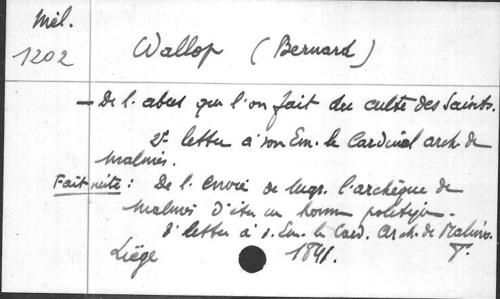 Mél.
1202
Wallop (Bernard)
- De l'abus que l'on fait du culte des Saints.
2e lettre à son Em. le Cardinal arch. de
Malines.
Fait suite : De l'envie de Mgr. l'archevêque de
Malines d'être un homme politique.
3e lettre à s. Em. le Card. Arch. de Malines.
Liège 1841. T.